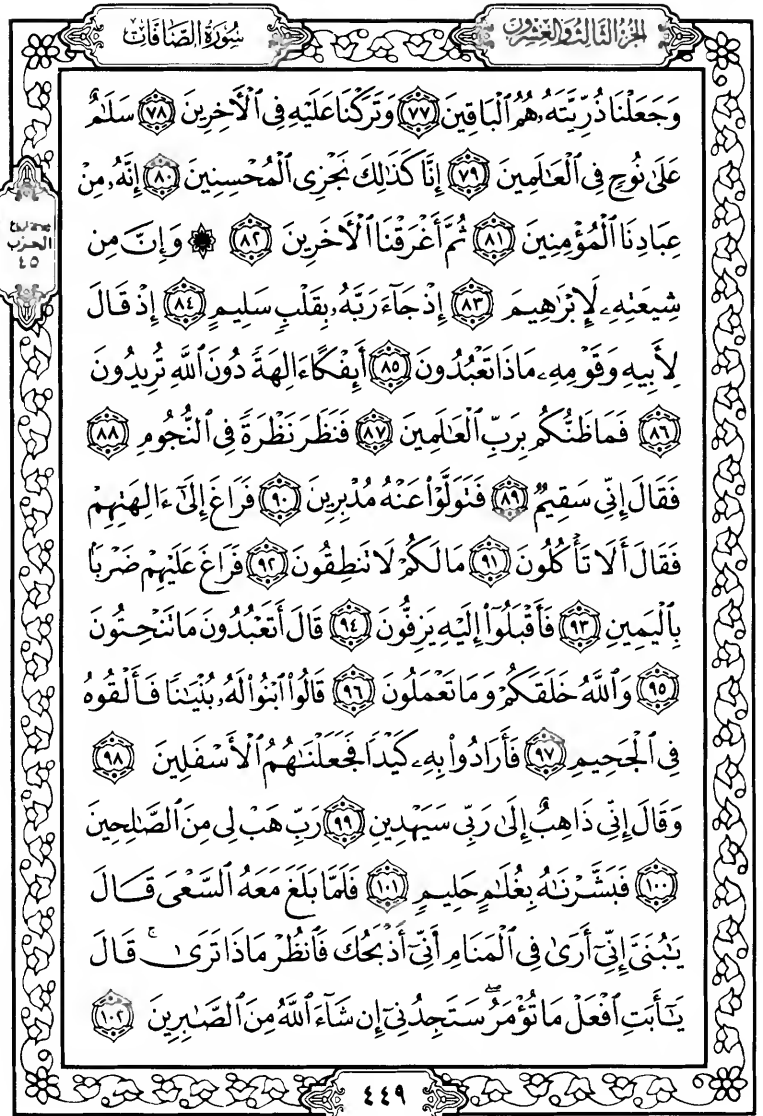 سُورَةُ الصَّافَّاتِ
الجُزْءُ الثَّالِثُ وَالْعِشْرُونَ
وَجَعَلْنَا ذُرِّيَّتَهُۥ هُمُ ٱلْبَاقِينَ ٧٧ وَتَرَكْنَا عَلَيْهِ فِى ٱلْأَخِرِينَ ٧٨ سَلَٰمٌ
عَلَىٰ نُوحٍ فِى ٱلْعَٰلَمِينَ ٧٩ إِنَّا كَذَٰلِكَ نَجْزِى ٱلْمُحْسِنِينَ ٨٠ إِنَّهُۥ مِنْ
عِبَادِنَا ٱلْمُؤْمِنِينَ ٨١ ثُمَّ أَغْرَقْنَا ٱلْأَخَرِينَ ٨٢ ۞ وَإِنَّ مِن
شِيعَتِهِۦ لَإِبْرَٰهِيمَ ٨٣ إِذْ جَآءَ رَبَّهُۥ بِقَلْبٍ سَلِيمٍ ٨٤ إِذْ قَالَ
لِأَبِيهِ وَقَوْمِهِۦ مَاذَا تَعْبُدُونَ ٨٥ أَئِفْكًا ءَالِهَةً دُونَ ٱللَّهِ تُرِيدُونَ
٨٦ فَمَا ظَنُّكُم بِرَبِّ ٱلْعَٰلَمِينَ ٨٧ فَنَظَرَ نَظْرَةً فِى ٱلنُّجُومِ ٨٨
فَقَالَ إِنِّى سَقِيمٌ ٨٩ فَتَوَلَّوْا۟ عَنْهُ مُدْبِرِينَ ٩٠ فَرَاغَ إِلَىٰٓ ءَالِهَتِهِمْ
فَقَالَ أَلَا تَأْكُلُونَ ٩١ مَا لَكُمْ لَا تَنطِقُونَ ٩٢ فَرَاغَ عَلَيْهِمْ ضَرْبًۢا
بِٱلْيَمِينِ ٩٣ فَأَقْبَلُوٓا۟ إِلَيْهِ يَزِفُّونَ ٩٤ قَالَ أَتَعْبُدُونَ مَا تَنْحِتُونَ
٩٥ وَٱللَّهُ خَلَقَكُمْ وَمَا تَعْمَلُونَ ٩٦ قَالُوا۟ ٱبْنُوا۟ لَهُۥ بُنْيَٰنًا فَأَلْقُوهُ
فِى ٱلْجَحِيمِ ٩٧ فَأَرَادُوا۟ بِهِۦ كَيْدًا فَجَعَلْنَٰهُمُ ٱلْأَسْفَلِينَ ٩٨
وَقَالَ إِنِّى ذَاهِبٌ إِلَىٰ رَبِّى سَيَهْدِينِ ٩٩ رَبِّ هَبْ لِى مِنَ ٱلصَّٰلِحِينَ
١٠٠ فَبَشَّرْنَٰهُ بِغُلَٰمٍ حَلِيمٍ ١٠١ فَلَمَّا بَلَغَ مَعَهُ ٱلسَّعْىَ قَالَ
يَٰبُنَىَّ إِنِّىٓ أَرَىٰ فِى ٱلْمَنَامِ أَنِّىٓ أَذْبَحُكَ فَٱنظُرْ مَاذَا تَرَىٰ ۚ قَالَ
يَٰٓأَبَتِ ٱفْعَلْ مَا تُؤْمَرُ ۖ سَتَجِدُنِىٓ إِن شَآءَ ٱللَّهُ مِنَ ٱلصَّٰبِرِينَ ١٠٢
الحزب
٤٥
٤٤٩